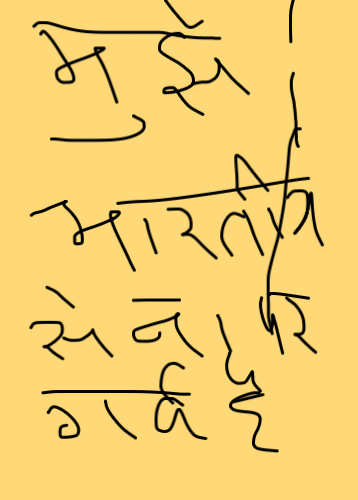 मुझे
भारतीय
सेना पर
गर्व है